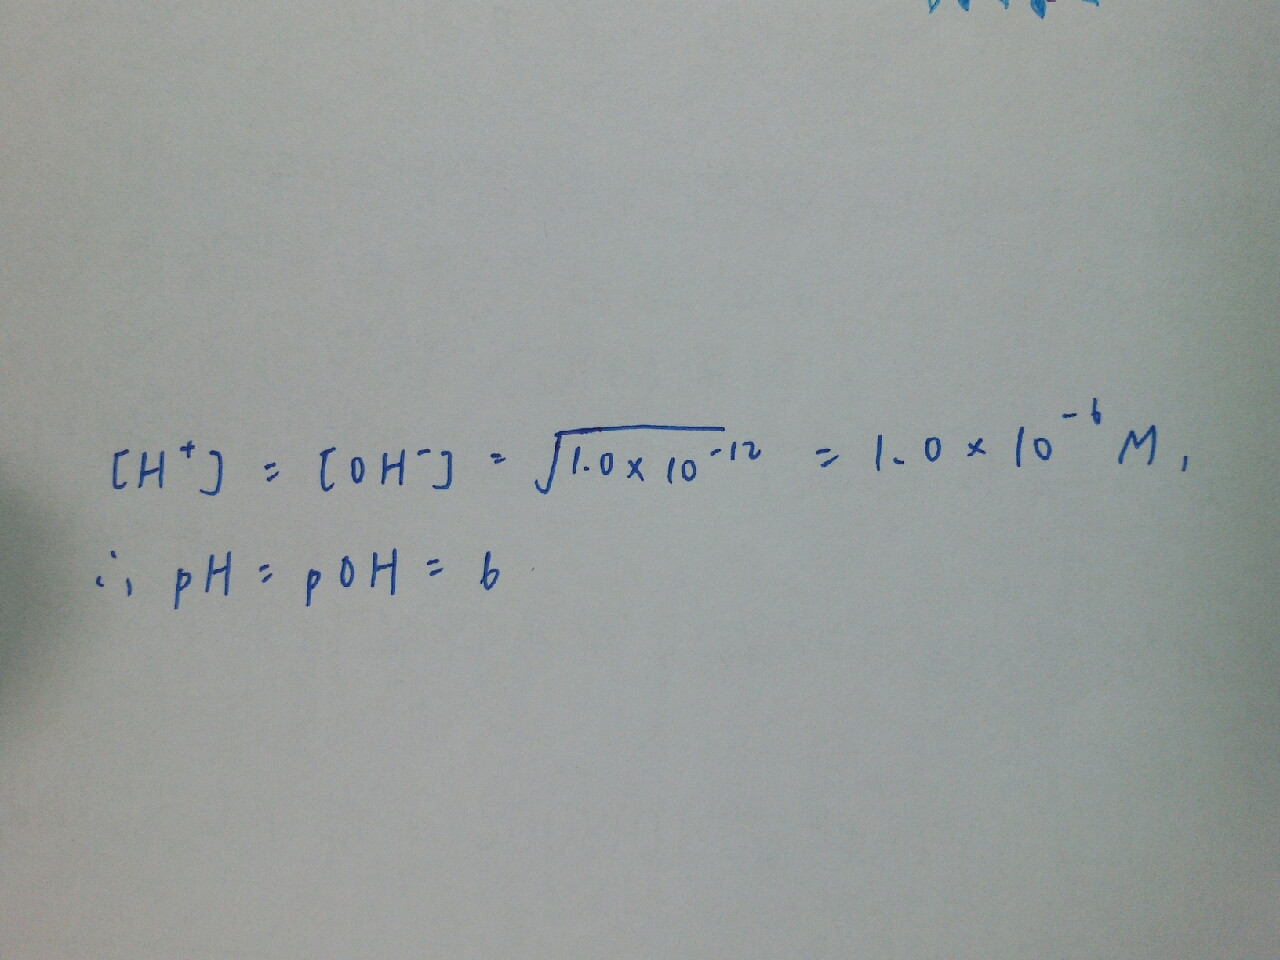 [H⁺] = [OH⁻] = √1.0 × 10⁻¹² = 1.0 × 10⁻⁶ M,
∴, pH = pOH = 6